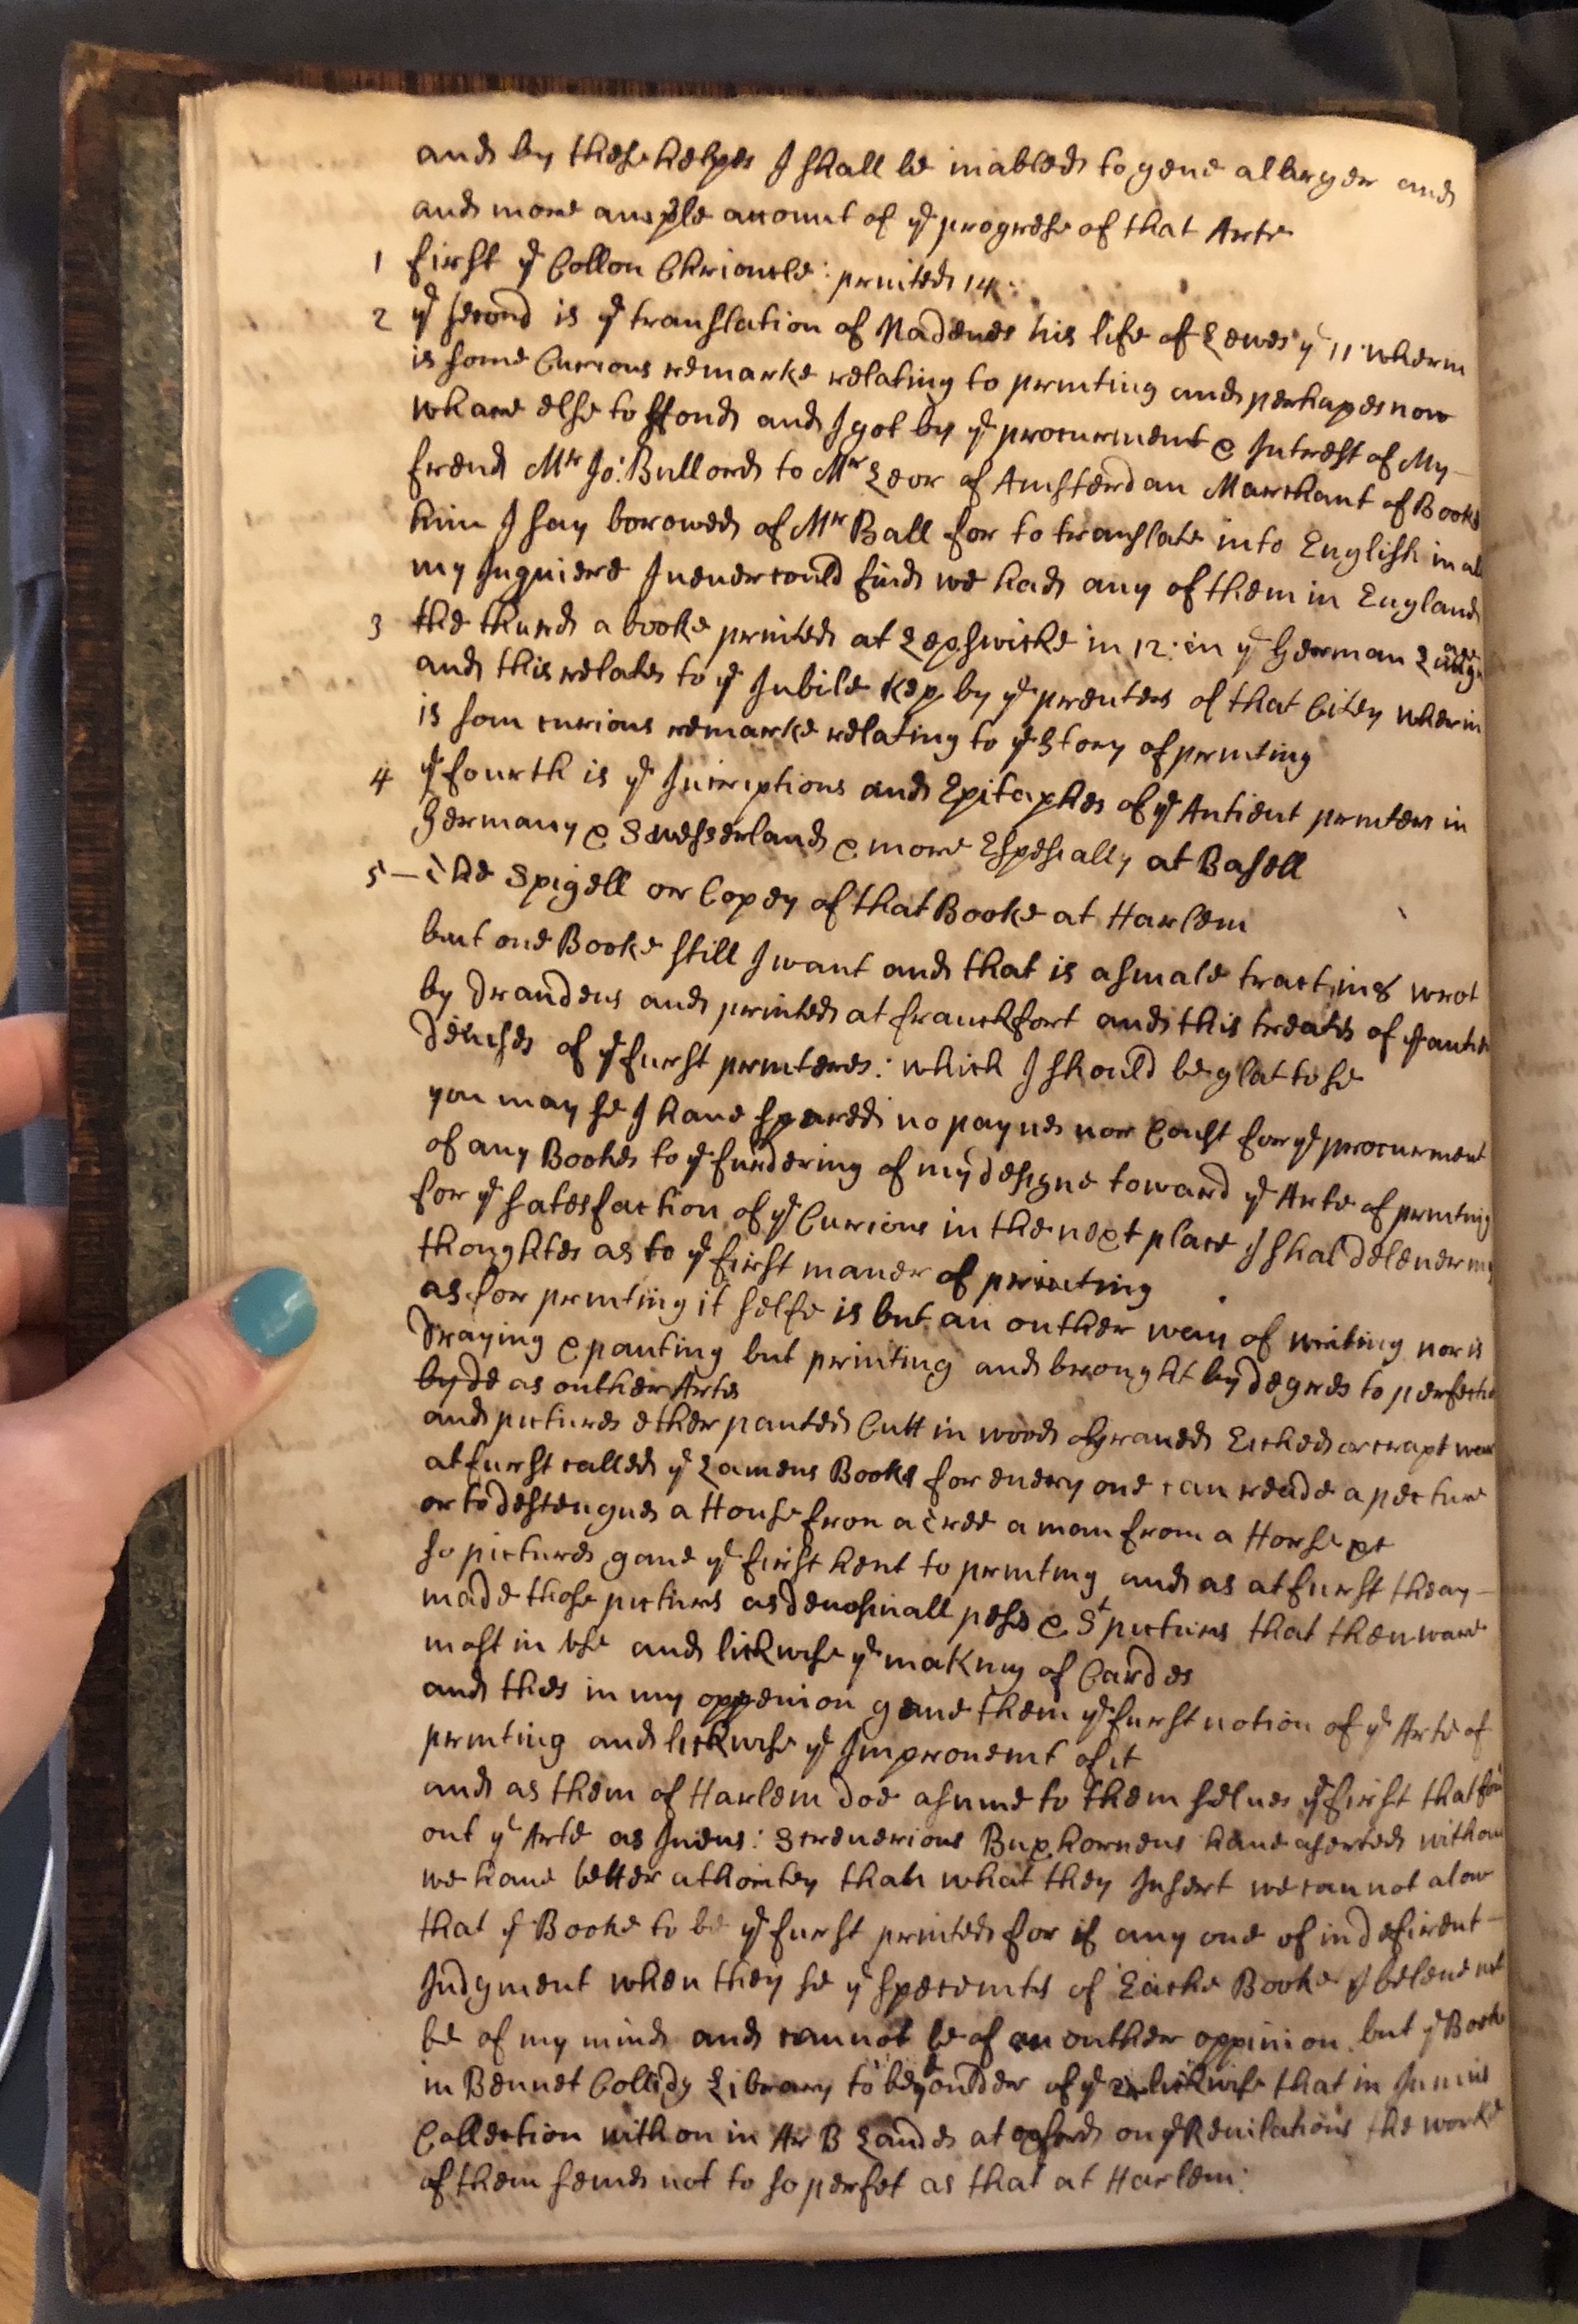 and by these helpes I shall be inabled to geue a larger and
and more ample acount of yᵉ progrese of that Arte
1 first yᵉ Collon Chrionicle: printed 14:
2 yᵉ second is yᵉ translation of Nadeues his life of Lewes yᵉ 11 wherin
is some Curious remarke relating to printing and perhapes now
whare else to ffond and I got by yᵉ procurment & Intrest of My
frend Mʳ Jo: Bullord to Mʳ Leor of Amsterdan Marchant of Books
him I say borowed of Mʳ Ball for to translate into English in al
my Inquiere I neuer could find we had any of them in England
3 the thurd a booke printed at Lepswicke in 12: in yᵉ German
and this relates to yᵉ Jubile kep by yᵉ prenters of that Citey wherin
is som curious remarke relating to yᵉ Story of printing
4 yᵉ fourth is yᵉ Incriptions and Epitaphes of yᵉ Antient printers in
Germany & Sweserland & more Espesially at Basell
5 — the Spigell or Copey of that Booke at Harlem
but one Booke still I want and that is a smale tract in 8 wrot
by Draudeus and printed at franckfort and this treates of yᵉ
Deuises of yᵉ furst printeres: which I should be glat to se
you may se I haue spared no paynes nor Coust for yᵉ procurment
of any Bookes to yᵉ furdering of my designe toward yᵉ Arte of printing
for yᵉ satesfaction of yᵉ Curious in the next place I shal deleuer my
thoughtes as to yᵉ first maner of printing
as for printing it selfe is but an outher way of writing nor is
Draying & panting but printing and brought by degres to perfectio
by de as outher Artes
and pictures ether panted Cutt in wood Graued Etched or scrapt
at furst called yᵉ Lamens Books for euery one can reade a pecture
or to destengues a House fron a tree a man from a Horse &c
so pictures gaue yᵉ first hent to printing and as at furst theay
made those picturs as deuosinall peses & Sᵗ picturs that then ware
most in vse and lickwise yᵉ making of Cardes
and thes in my oppenion geaue them yᵉ furst notion of yᵉ Arte of
printing and lickwise yᵉ Improuemt of it
and as them of Harlem doe asume to them selues yᵉ first that
out yᵉ Arte as Jneus: Screuerious Buxhorneus haue aserted without
we haue better athoritey than what they Insert we cannot alow
that yᵉ Booke to be yᵉ furst printed for if any one of indefirent
Judgment when they se yᵉ specemts of Eache Booke I beleue
be of my mind and cannot be of an outher oppinion but yᵉ Booke
in Bennet Collidg Library to be oulder of yᵉ lickwise that in Junius
Collection with on in Ar B Lande at oxford on yᵉ Reuilations the worke
of them semes not to so perfet as that at Harlem: